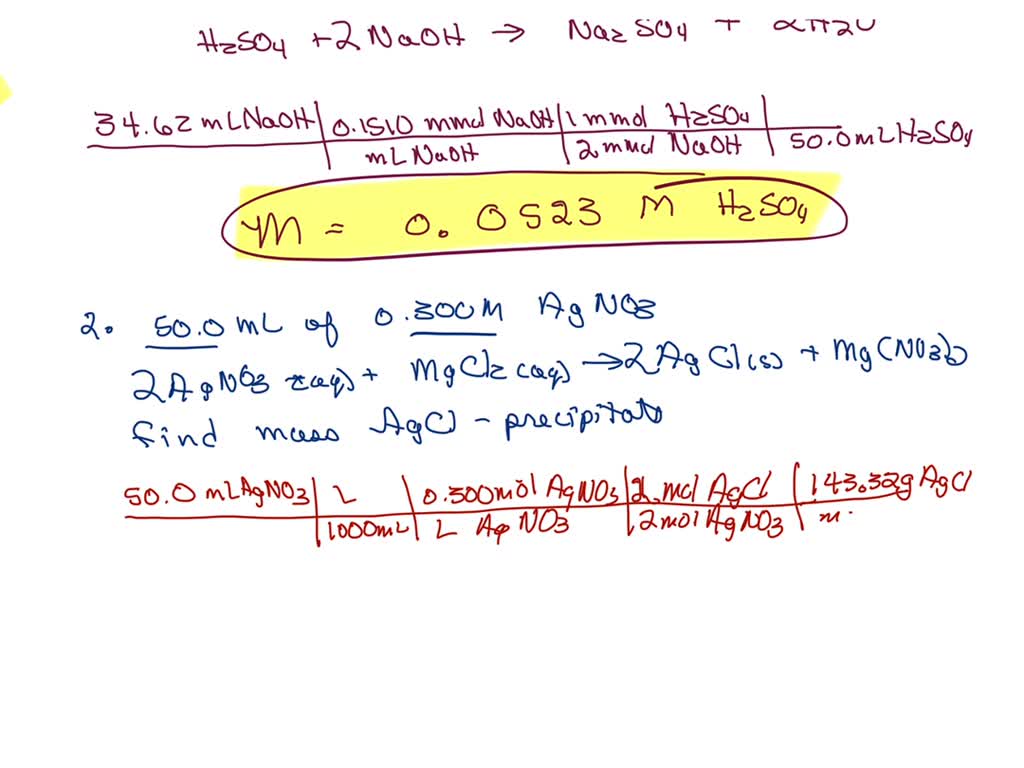 H2SO4 + 2 NaOH → Na2SO4 + 2H2O
34.62 mL NaOH | 0.1510 mmol NaOH | 1 mmol H2SO4 |
mL NaOH | 2 mmol NaOH | 50.0 mL H2SO4
M = 0.0523 M H2SO4
2. 50.0 mL of 0.300M AgNO3
2AgNO3 (aq) + MgCl2 (aq) → 2AgCl(s) + Mg(NO3)2
find mass AgCl - precipitate
50.0 mL AgNO3 | L | 0.300 mol AgNO3 | 2 mol AgCl | 143.32g AgCl
1000mL | L AgNO3 | 2 mol AgNO3 | m